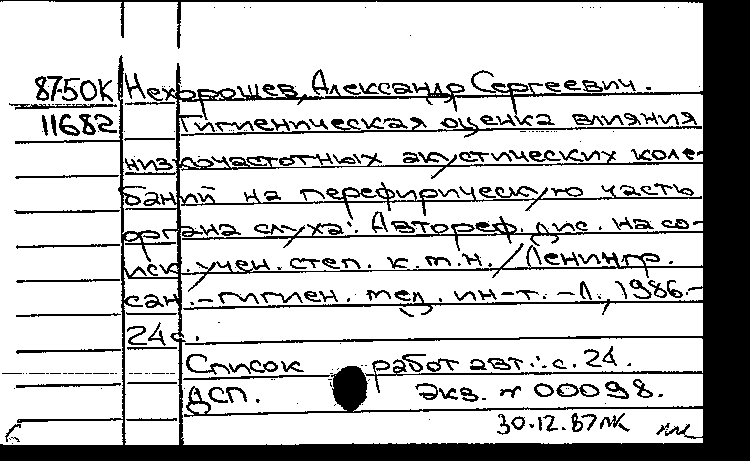 87-50К Нехорошев, Александр Сергеевич.
11682 Гигиеническая оценка влияния
низкочастотных акустических коле-
баний на перефирическую часть
органа слуха: Автореф. дис. на со-
иск. учен. степ. к.т.н. / Ленингр.
сан.-гигиен. мед. ин-т. -Л., 1986.-
24с.
Список работ авт.: с. 24.
ДСП. Экз. № 00098.
30.12.87